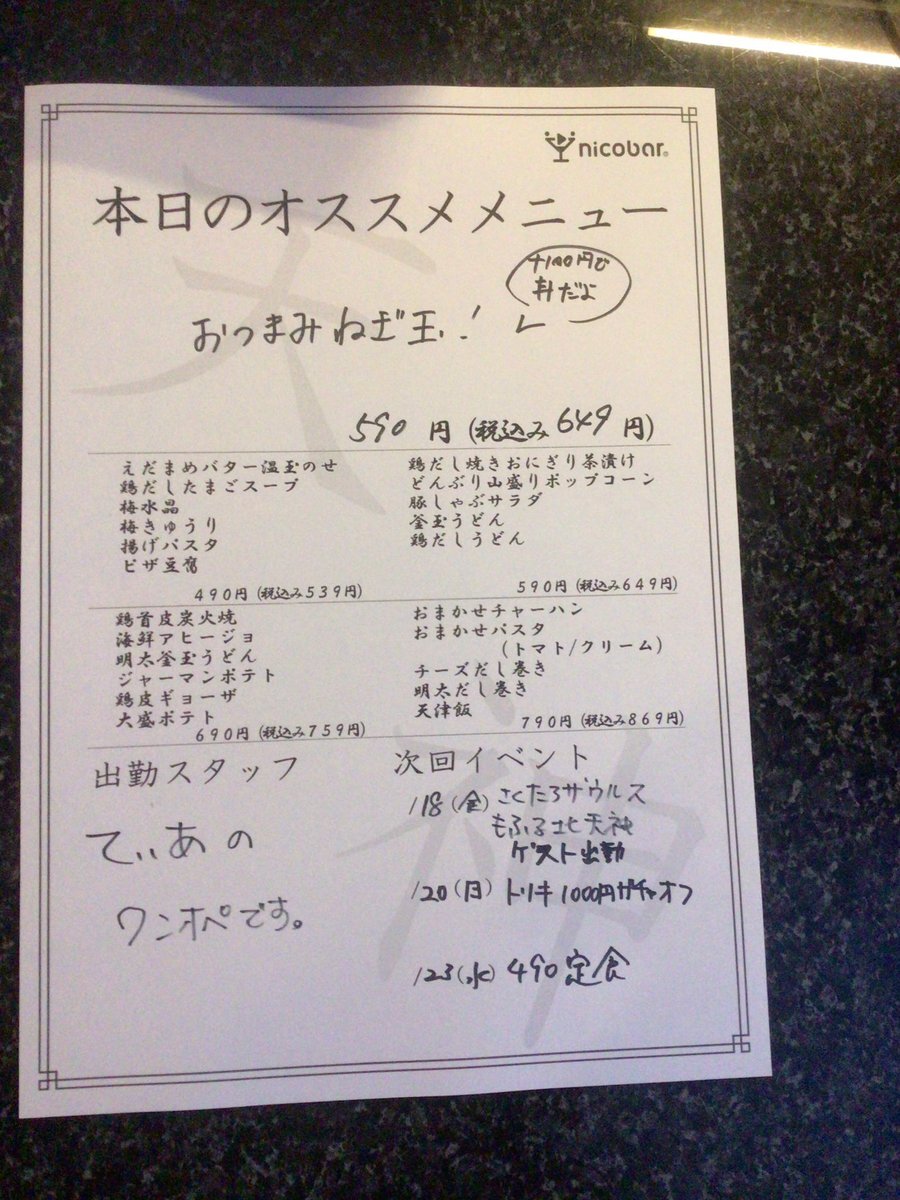 nicobar®
本日のオススメメニュー
+100円で
丼だよ
おつまみねぎ玉!
590円(税込み649円)
えだまめバター温玉のせ
鶏だしたまごスープ
梅水晶
梅きゅうり
揚げパスタ
ピザ豆腐
490円(税込み539円)
鶏だし焼きおにぎり茶漬け
どんぶり山盛りポップコーン
豚しゃぶサラダ
釜玉うどん
鶏だしうどん
590円(税込み649円)
鶏首皮炭火焼
海鮮アヒージョ
明太釜玉うどん
ジャーマンポテト
鶏皮ギョーザ
大盛ポテト
690円(税込み759円)
おまかせチャーハン
おまかせパスタ
(トマト/クリーム)
チーズだし巻き
明太だし巻き
天津飯
790円(税込み869円)
出勤スタッフ
てぃあの
ワンオペです。
次回イベント
1/18(金)さくたろザウルス
もふる北天神
ゲスト出勤
1/20(日)トリキ1000円ガチャオフ
1/23(水)490定食
天神